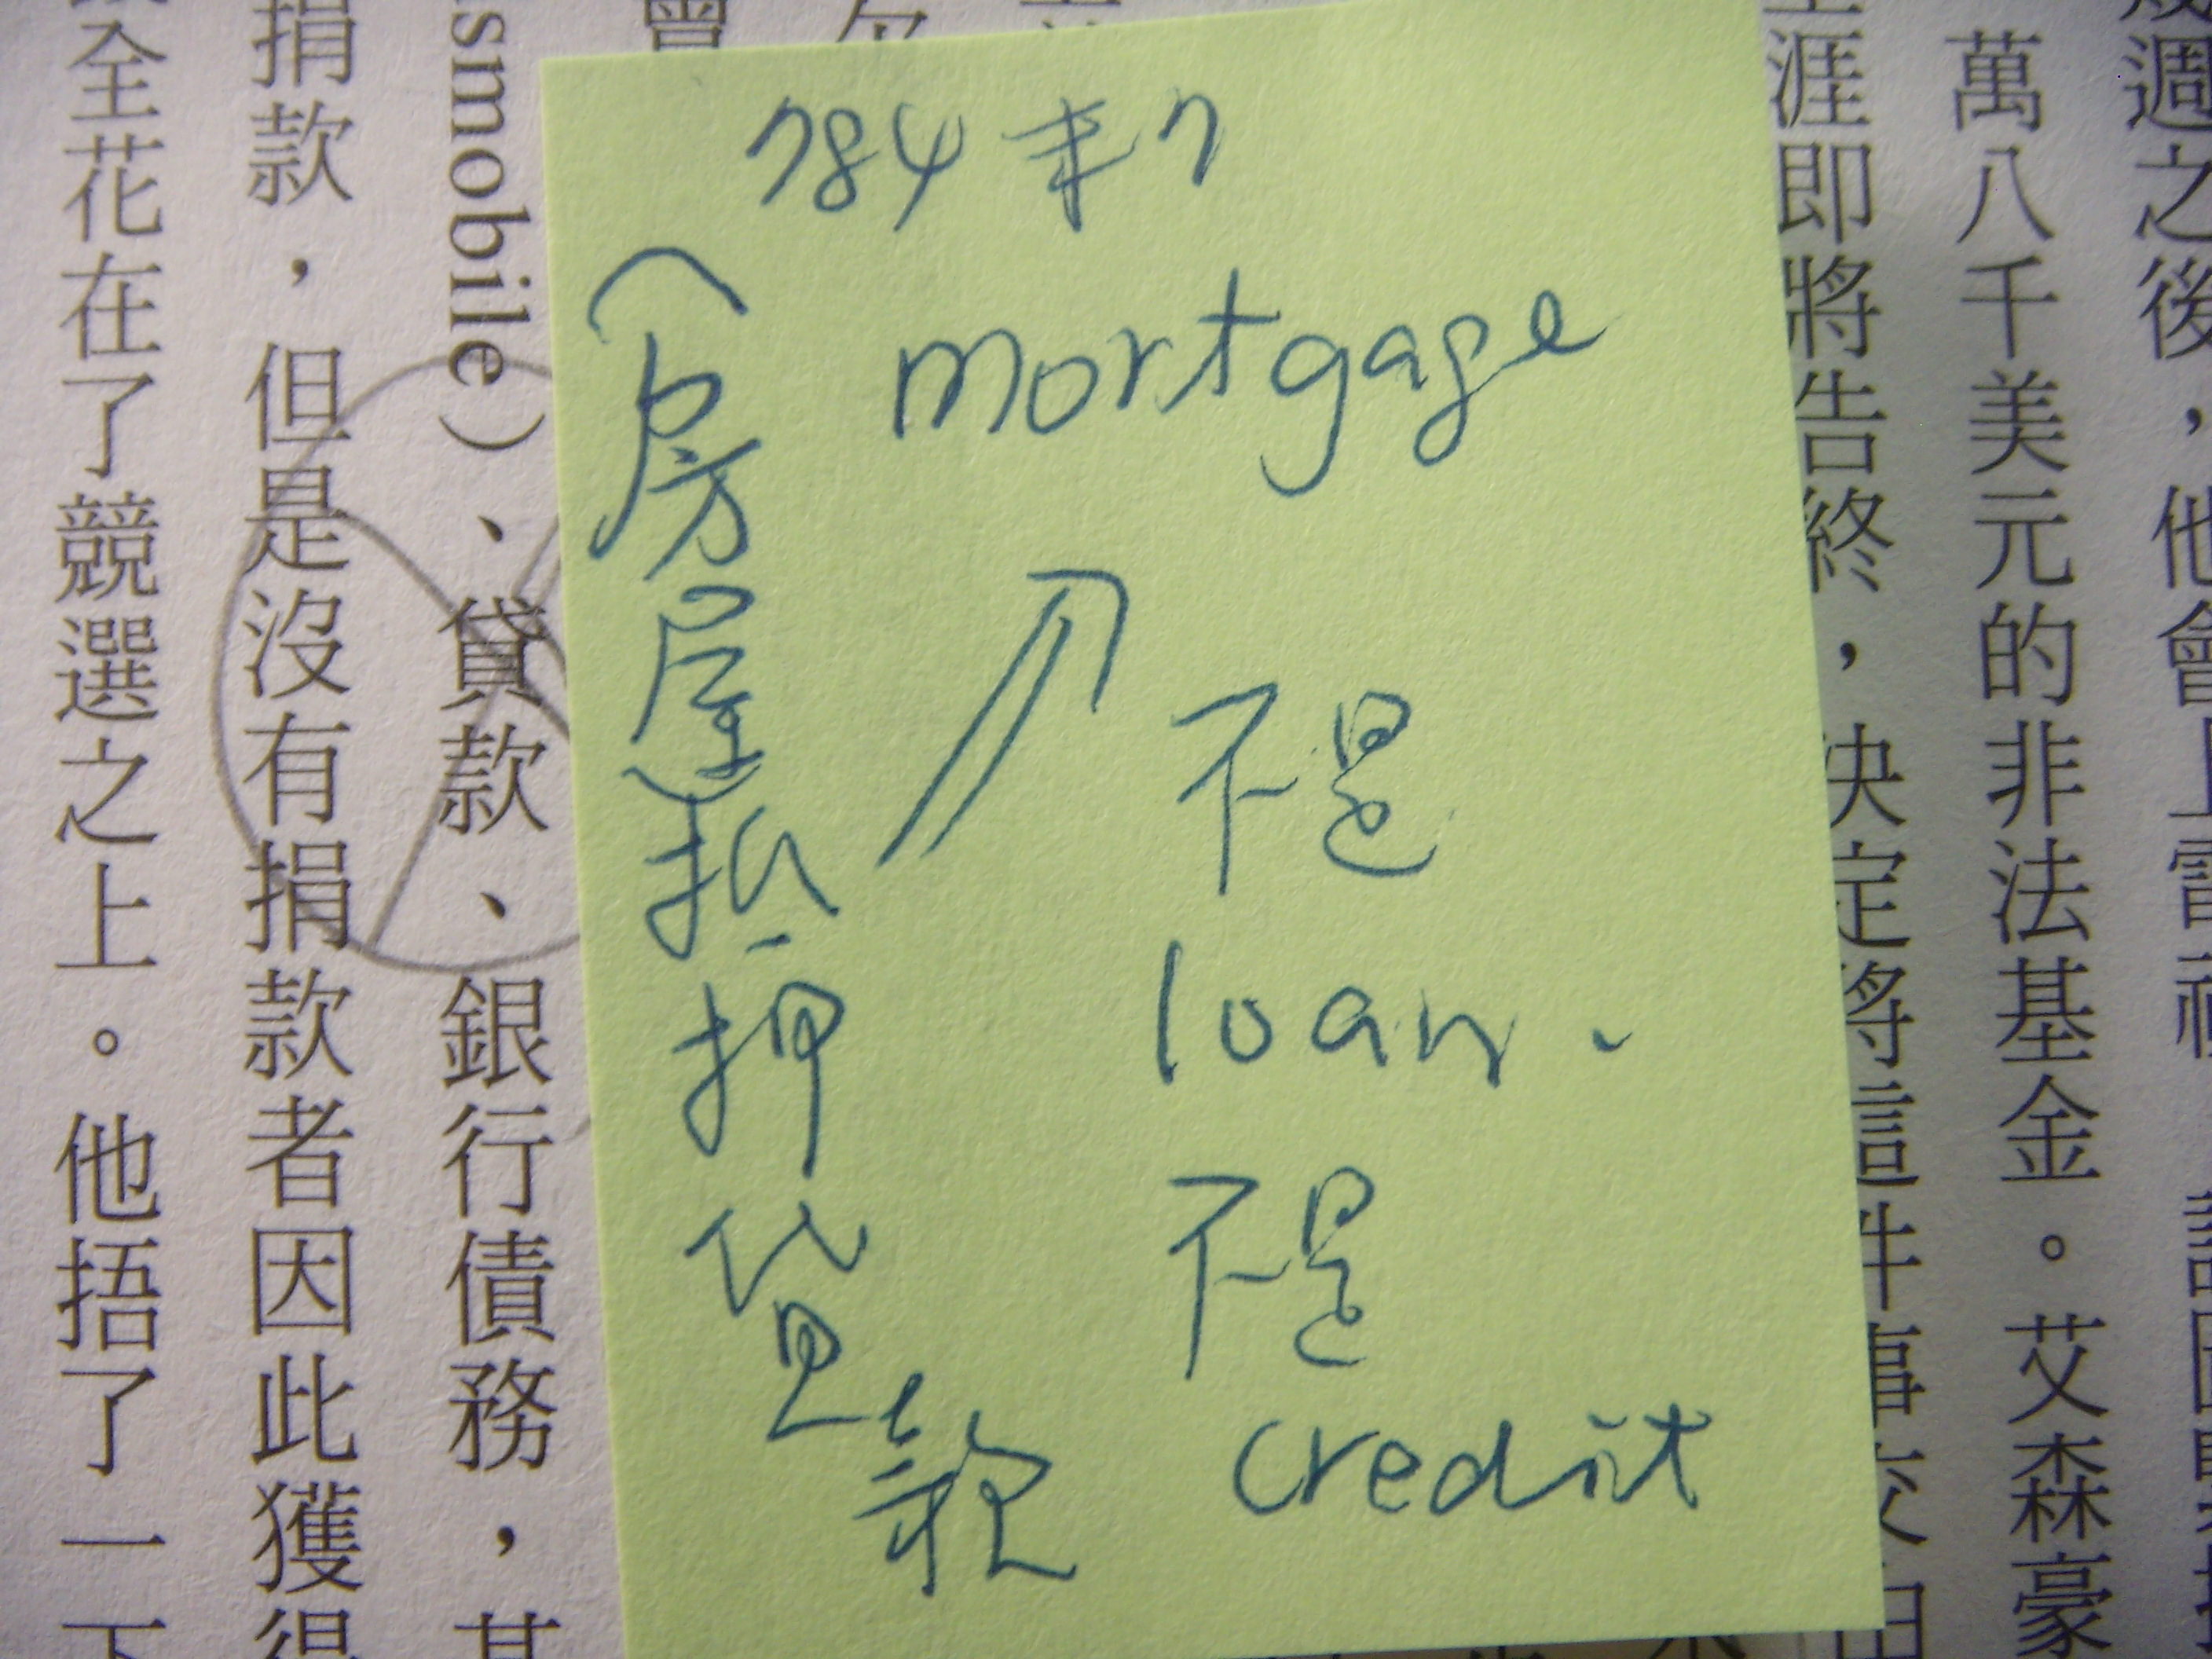 幾週之後，他會
萬八千美元的非法基金。艾森豪
涯即將告終，決定將這件事交由
784末7
mortgage
(房屋)抵押貸款
不是
loan.
不是
credit
smobile）、貸款、銀行債務，其
捐款，但是沒有捐款者因此獲得
全花在了競選之上。他捂了一下